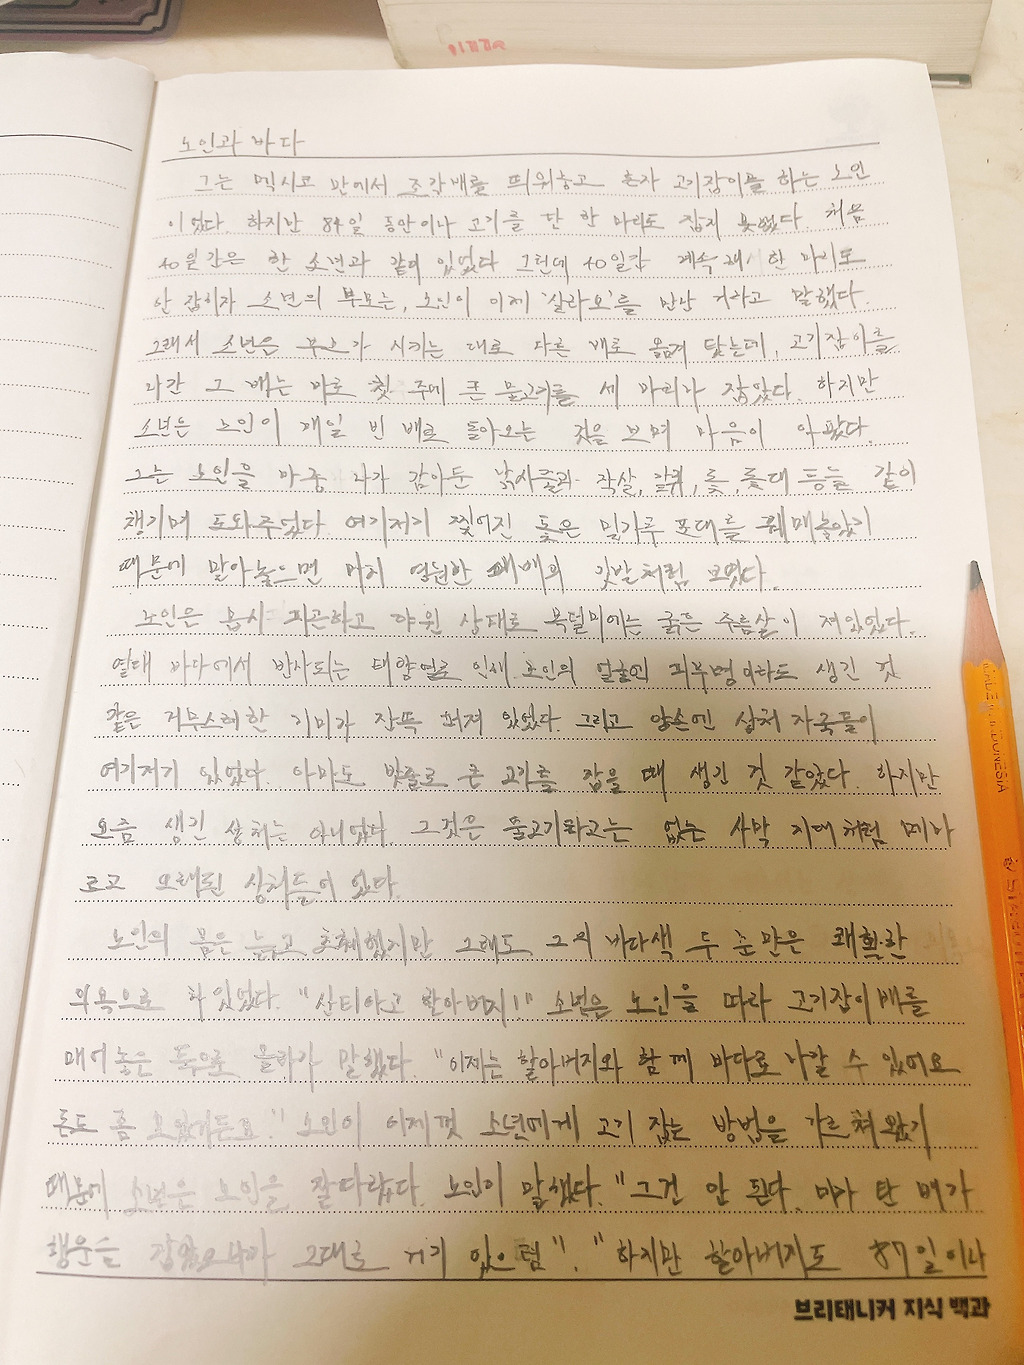 노인과 바다
그는 멕시코 만에서 조각배를 띄워놓고 혼자 고기잡이를 하는 노인
이었다. 하지만 84일 동안이나 고기를 단 한 마리도 잡지 못했다. 처음
40일간은 한 소년과 같이 있었다 그런데 40일간 계속해서 한 마리도
안 잡히자 소년의 부모는, 노인이 이제 '살라오'를 만난 거라고 말했다.
그래서 소년은 부모가 시키는 대로 다른 배로 옮겨 탔는데, 고기잡이를
나간 그 배는 바로 첫 주에 큰 물고기를 세 마리나 잡았다. 하지만
소년은 노인이 매일 빈 배로 돌아오는 것을 보며 마음이 아팠다.
그는 노인을 마중 나가 감아둔 낚시줄과 작살, 갈퀴, 돛, 돛대 등을 같이
챙기며 도와주었다 여기저기 찢어진 돛은 밀가루 포대를 꿰매놓았기
때문에 말아놓으면 마치 영원한 패배의 깃발처럼 보였다.
노인은 몹시 피곤하고 야윈 상태로 목덜미에는 굵은 주름살이 져있었다.
열대 바다에서 반사되는 태양열로 인해 노인의 얼굴엔 피부병이라도 생긴 것
같은 거무스레한 기미가 잔뜩 퍼져 있었다. 그리고 양손엔 상처 자국들이
여기저기 있었다. 아마도 밧줄로 큰 고기를 잡을 때 생긴 것 같았다. 하지만
요즘 생긴 상처는 아니었다 그것은 물고기라고는 없는 사막 지대처럼 메마
르고 오래된 상처들이었다.
노인의 몸은 늙고 초췌했지만 그래도 그의 바다색 두 눈만은 쾌활한
의욕으로 차있었다. "산티아고 할아버지!" 소년은 노인을 따라 고기잡이배를
매어놓은 둑으로 올라가 말했다. "이제는 할아버지와 함께 바다로 나갈 수 있어요
돈도 좀 모았거든요." 노인이 이제껏 소년에게 고기 잡는 방법을 가르쳐왔기
때문에 소년은 노인을 잘따랐다. 노인이 말했다. "그건 안 된다. 마가 탄 배가
행운을 잡았으니까 그대로 거기 있으렴". "하지만 할아버지도 87일이나
브리태니커 지식 백과